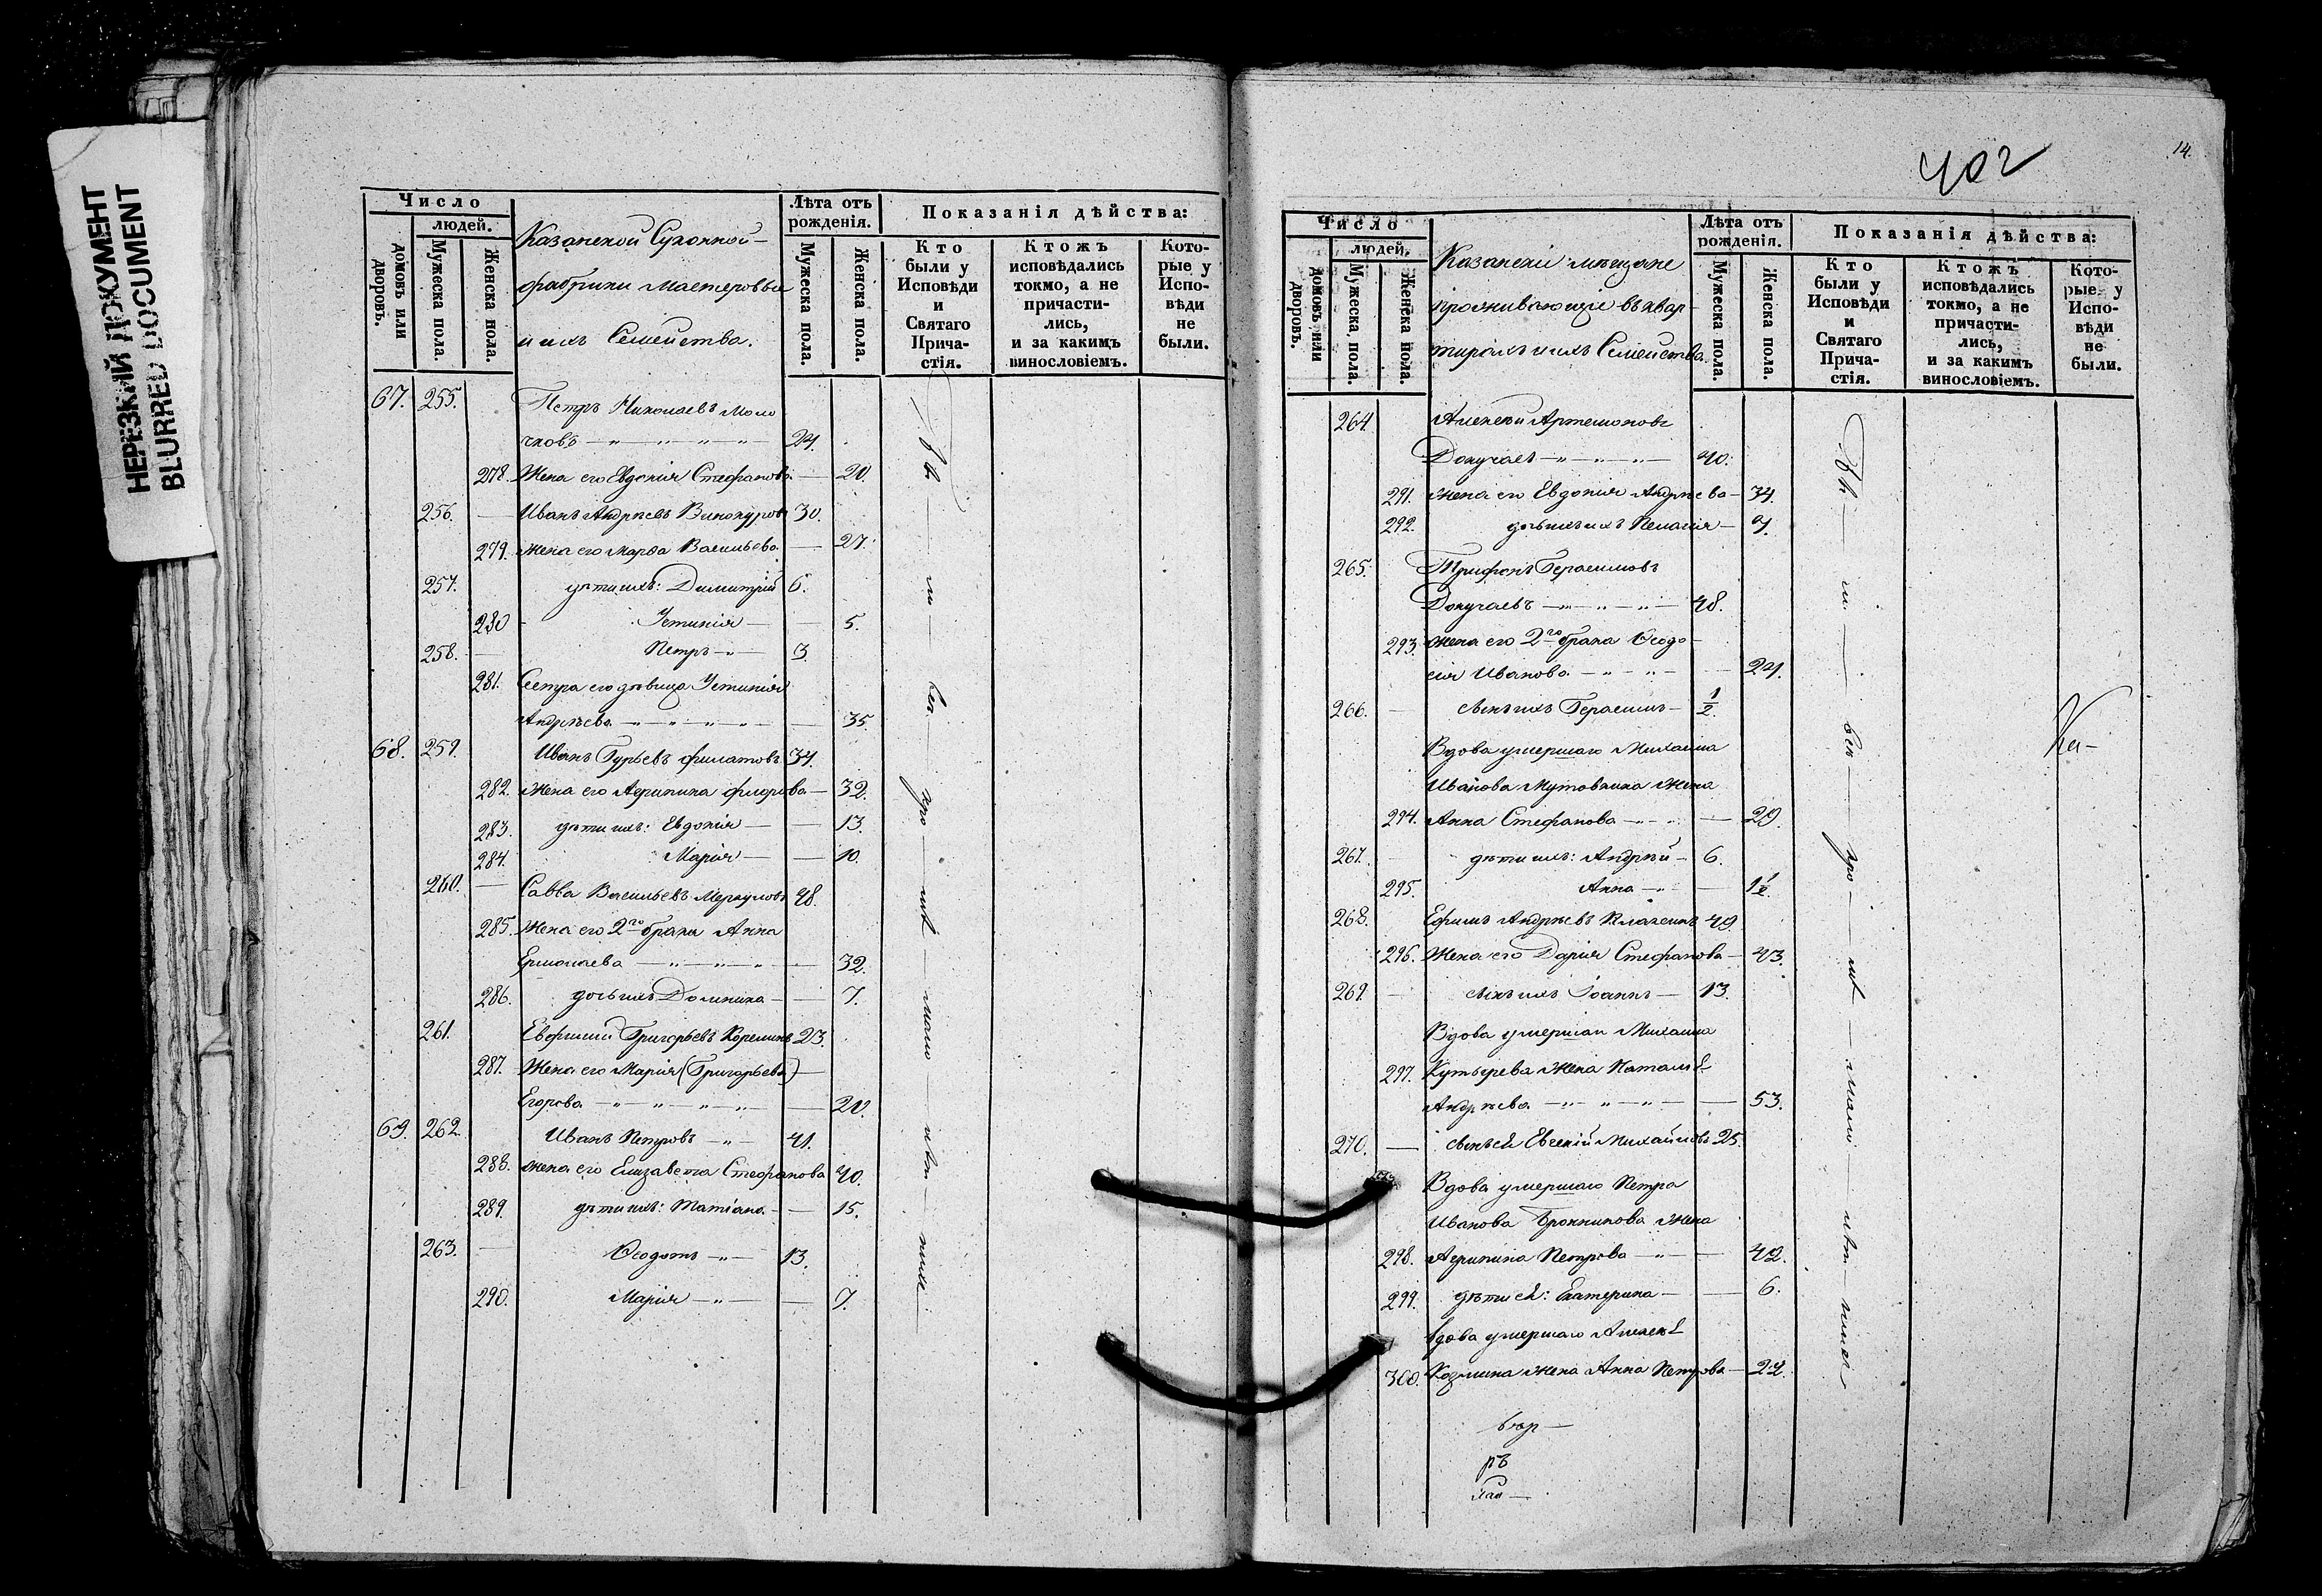 НЕРЕЗКИЙ ДОКУМЕНТ
BLURRED DOCUMENT
Число
людей.
домовъ или дворовъ.
Мужеска пола.
Женска пола.
Казанской Суконной
фабрики мастеровые
и ихъ Семейства.
Лѣта отъ рожденія.
Мужеска пола.
Женска пола.
Показанія дѣйства:
Кто были у Исповѣди и Святаго Прича-стія.
Ктожъ исповѣдались токмо, а не причасти-лись, и за какимъ винословіемъ.
Кото-рые у Испо-вѣди не были.
67. 255. Петръ Николаевъ Моло
чковъ — 24.
278. Жена его Евдокія Стефанова — 20.
256. Иванъ Андреевъ Винокуровъ 30.
279. Жена его Марѳа Васильева — 27.
257. дѣти ихъ: Димитрій 6.
280 Устинія — 5.
258. Петръ — 3.
281. Сестра его дѣвица Устинія
Андрѣева — 35.
68. 259. Иванъ Гурьевъ Филатовъ 34.
282. Жена его Агрипина Флорова — 32.
283. дѣти ихъ: Евдокія — 13.
284. Марія — 10.
260. Савва Васильевъ Меркуловъ 48.
285. Жена его 2го брака Анна
Ермолаева — 32.
286. дочь ихъ Домника — 7.
261. Евфимій Григорьевъ 23.
287. Жена его Марія (Григорьева)
Егорова — 20.
69. 262. Иванъ Петровъ — 41.
288. Жена его Елизавета Стефанова 40.
289. дѣти ихъ: Татіана — 15.
263. Ѳеодотъ — 13.
290. Марія — 7.
402
14.
Число
людей.
домовъ или дворовъ.
Мужеска пола.
Женска пола.
Казанскіе мѣщане
проживающіе въ квар-
тирахъ и ихъ Семейства.
Лѣта отъ рожденія.
Мужеска пола.
Женска пола.
Показанія дѣйства:
Кто были у Исповѣди и Святаго Прича-стія.
Ктожъ исповѣдались токмо, а не причасти-лись, и за какимъ винословіемъ.
Кото-рые у Испо-вѣди не были.
264. Алексѣй Артемоновъ
Докучаевъ — 40.
291. Жена его Евдокія Андреева — 34.
292. дочь ихъ Пелагія —
265. Трифонъ Герасимовъ
Докучаевъ — 48.
293. Жена его 2го брака Ѳеодо-
сія Иванова — 24.
266. сынъ ихъ Герасимъ — 1/2.
Вдова умершаго Михаила
Иванова Мутовкина Жена
294. Анна Стефанова — 29.
267. дѣти ихъ: Андрей — 6.
295. Анна — 1 1/2.
268. Ефимъ Андреевъ 49.
296. Жена его Дарія Стефанова — 43.
269. сынъ ихъ Іоаннъ — 13.
Вдова умершаго Михаила
297. Кутырева Жена Наталія
Андреева — 53.
270. сынъ ея Евгеній Михайловъ 25.
Вдова умершаго Петра
Иванова Бронникова Жена
298. Агрипина Петрова — 42.
299. дѣти ея: Екатерина — 6.
Вдова умершаго Алексѣя
300. Козмина Жена Анна Петрова — 22.